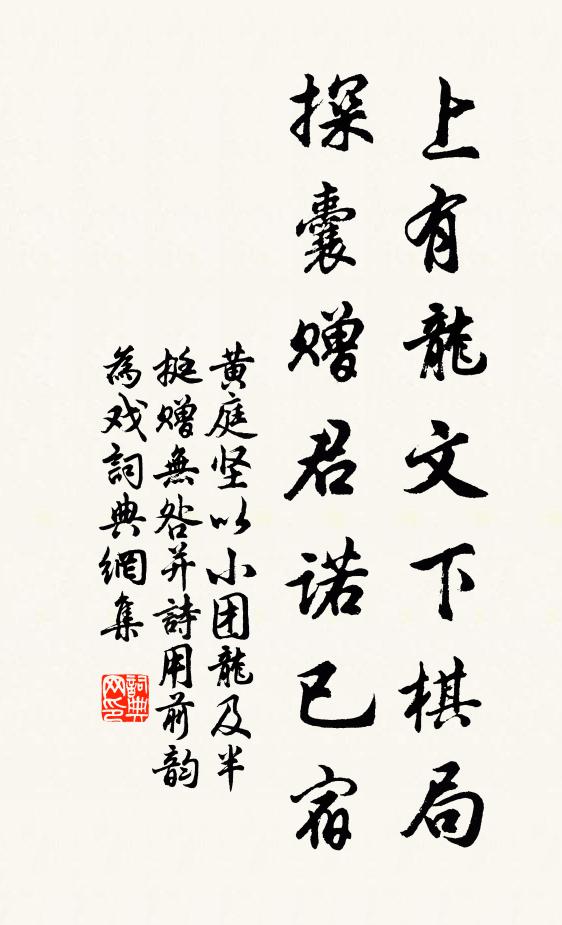 上有龍文下棋局
探囊赠君诺已宿
黄庭坚以小团龍及半
挺赠無咎并詩用前韵
為戏詞典網集
詞典网印